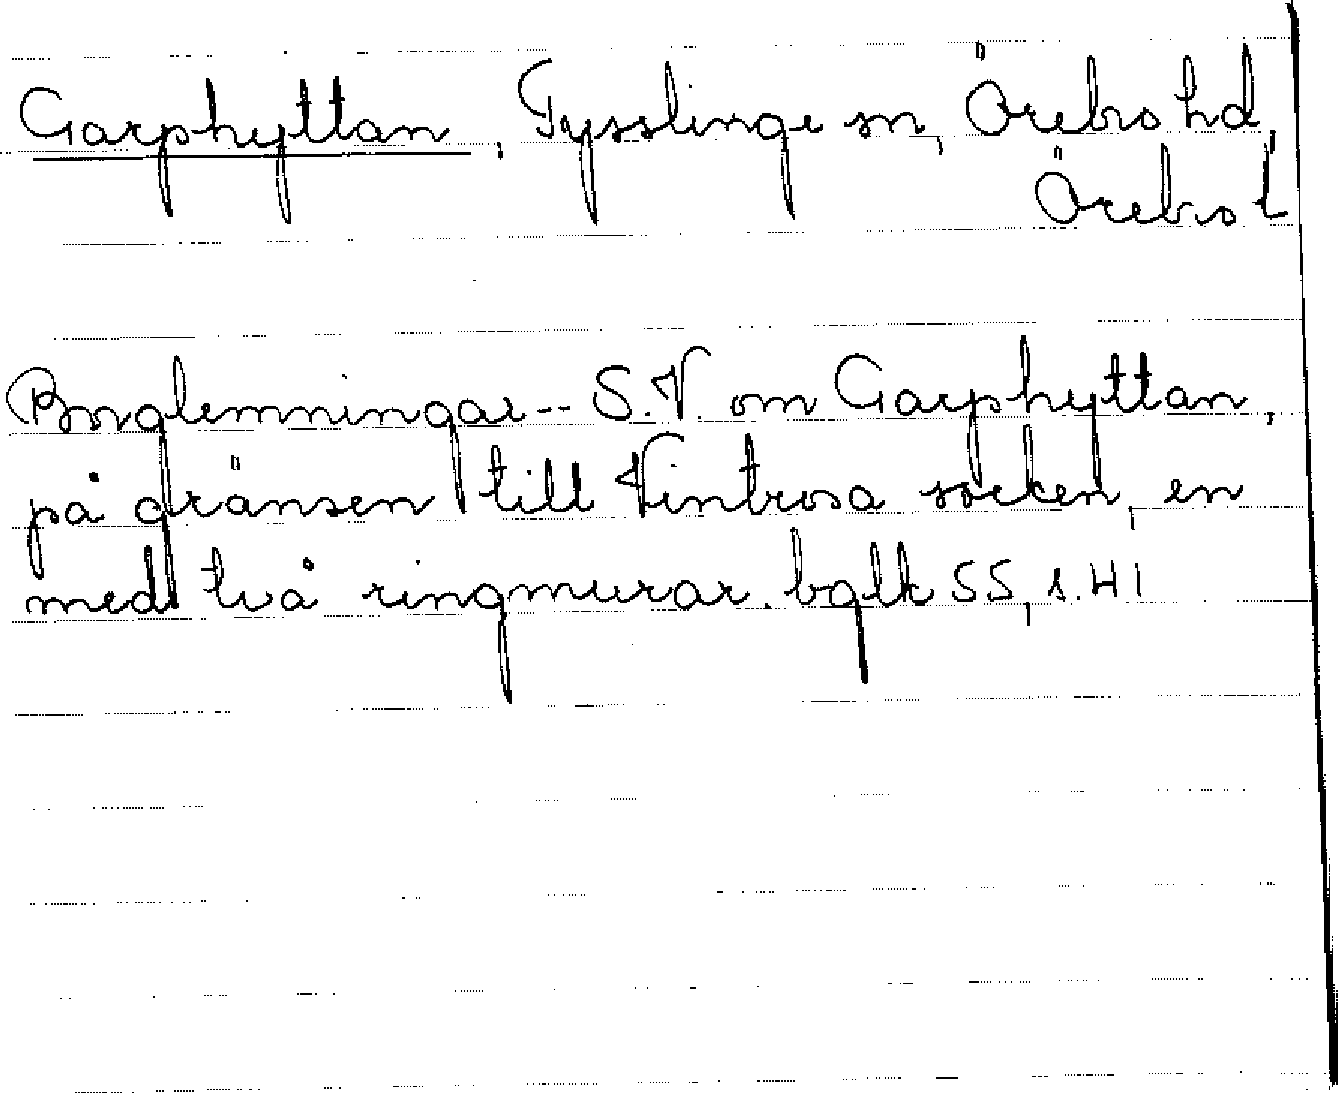 Garphyttan, Tysslinge sn, Örebro hd,
Örebro l
Borglemningar -- S.V. om Garphyttan,
på gränsen till Vintrosa socken, en
med två ringmurar. bglk 55, s. 41